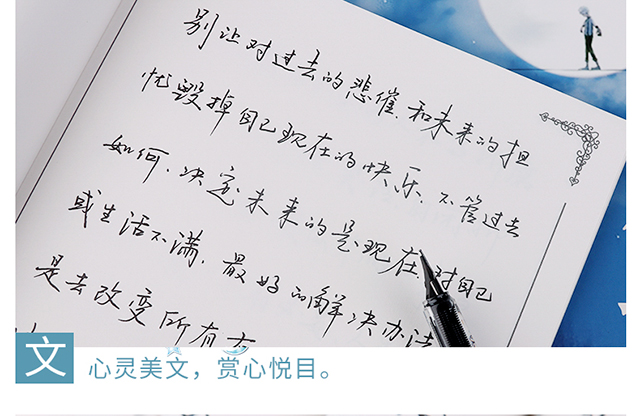 别让对过去的悲催.和未来的担
忧毁掉自己现在的快乐.不管过去
如何.决定未来的是现在.对自己
或生活不满.最好的解决办法
是去改变所有
文 心灵美文，赏心悦目。